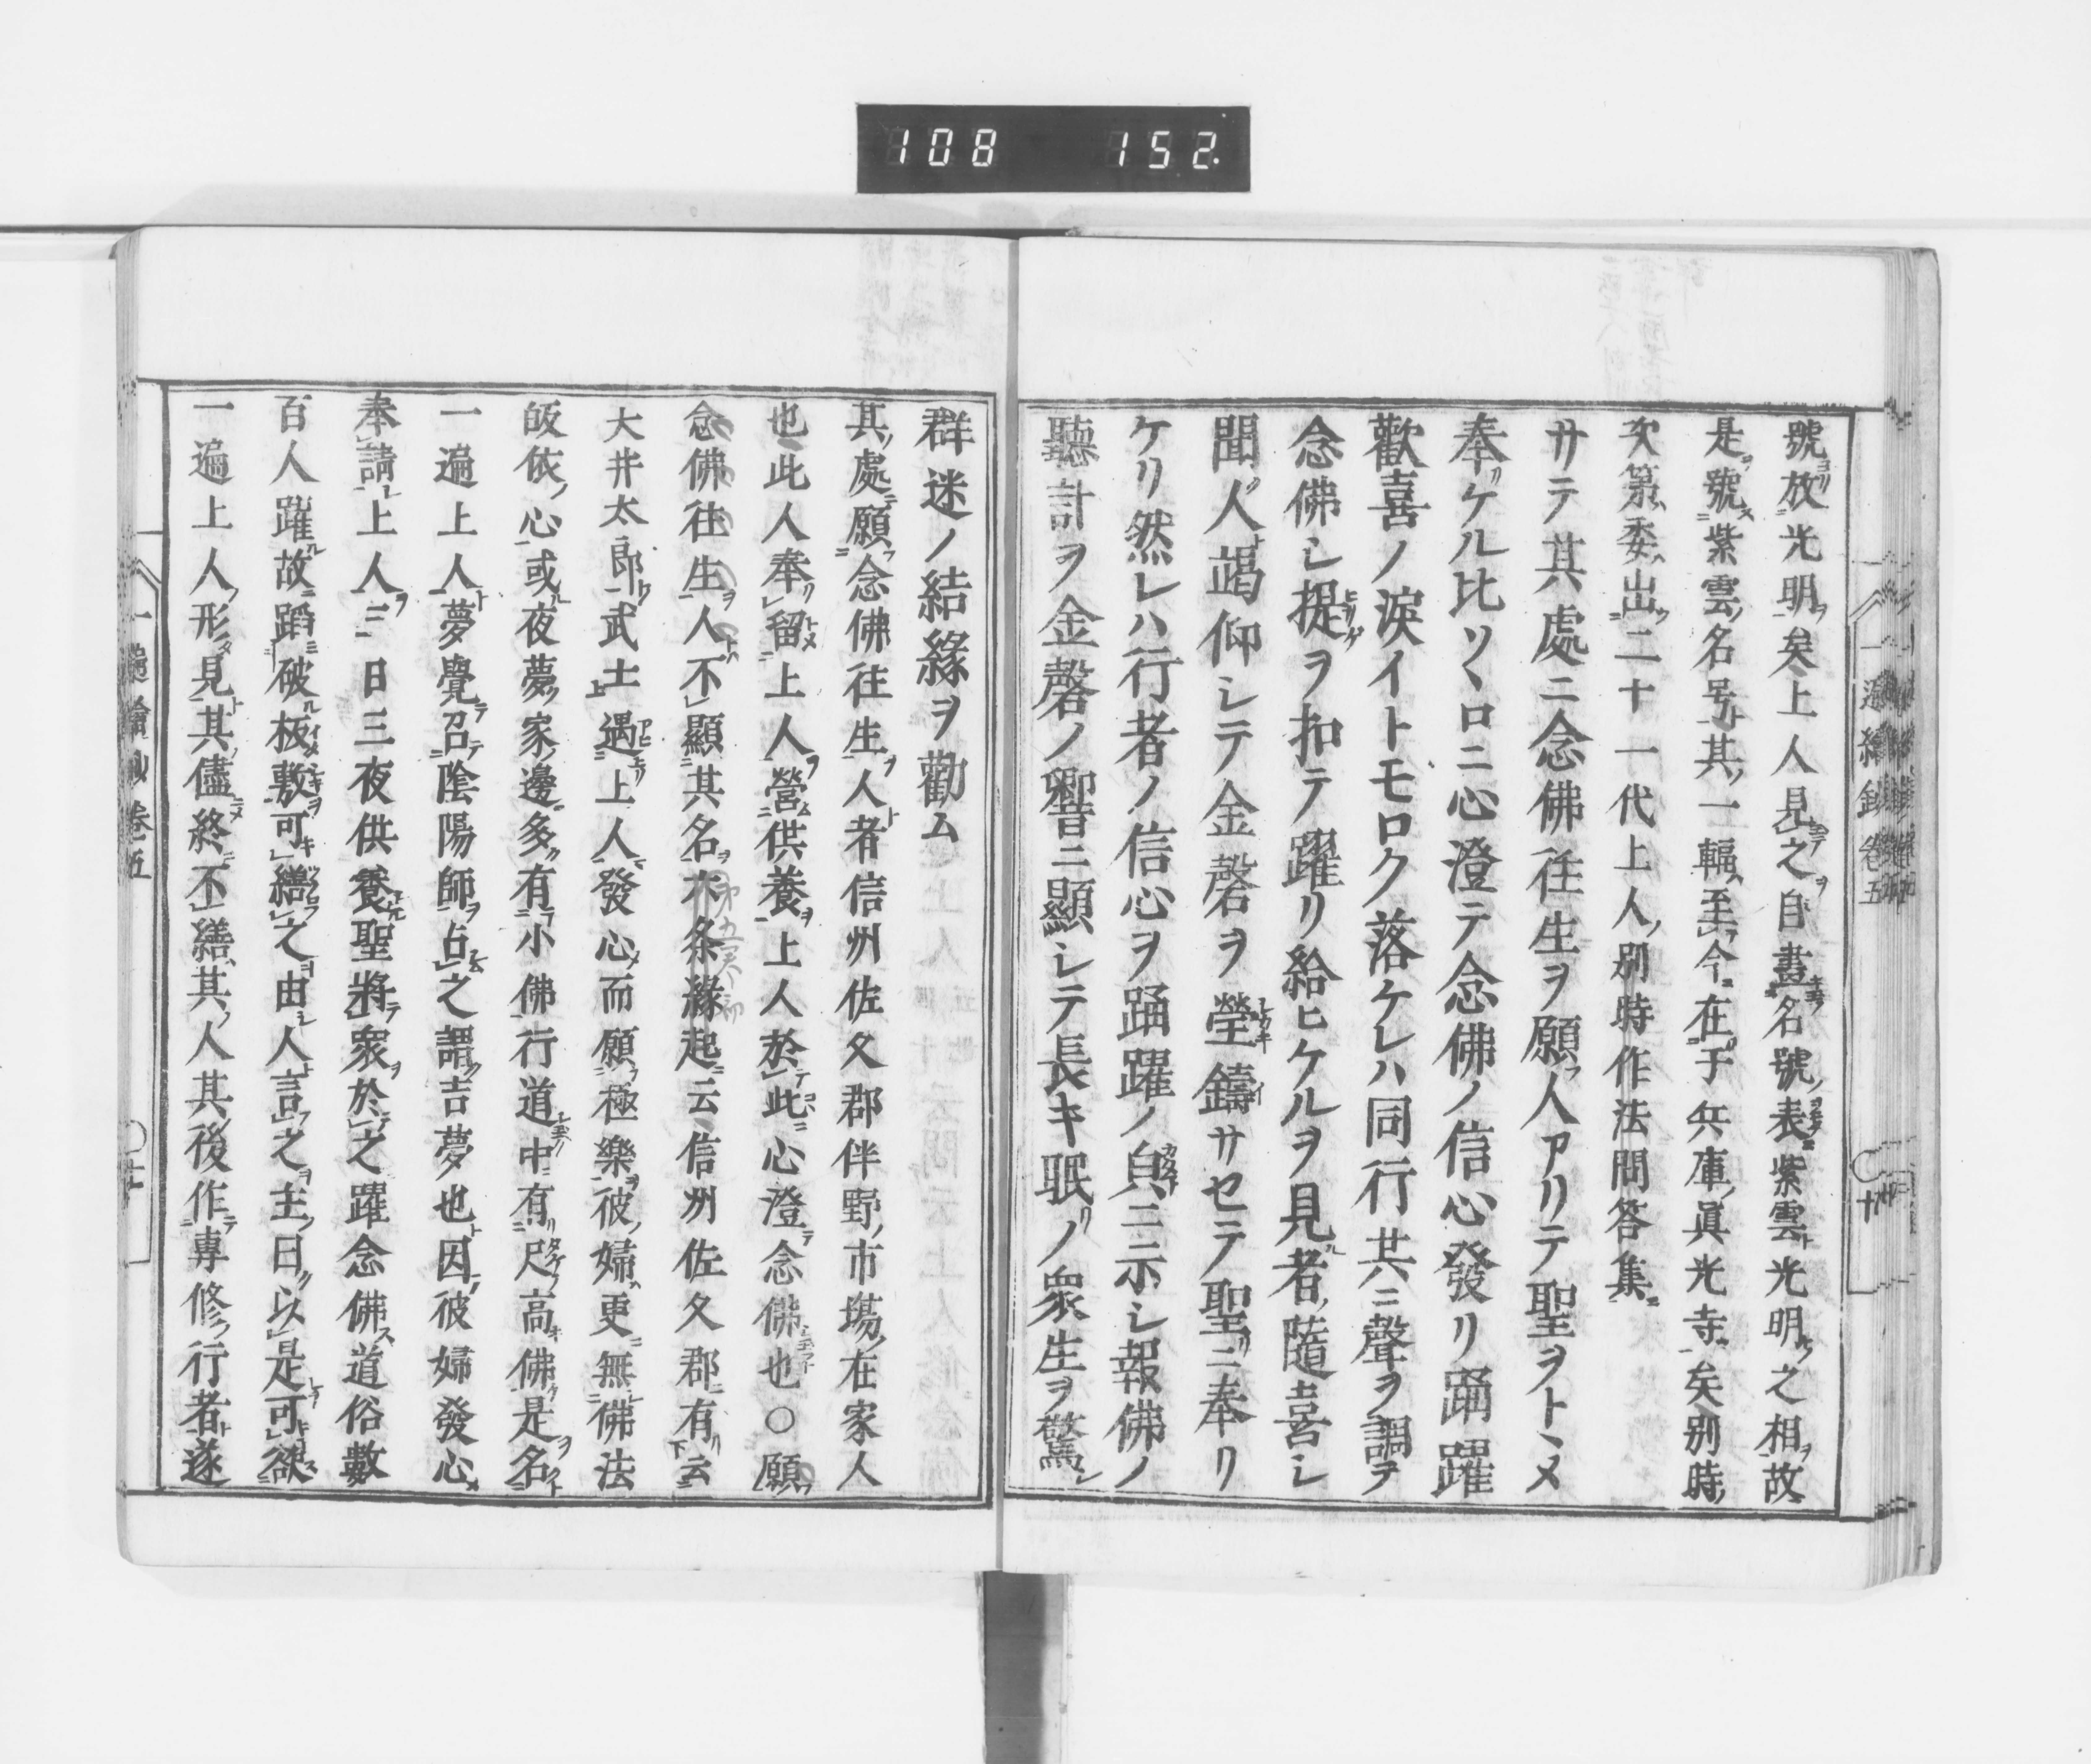 108 152.
號放光明矣上人見之自畫名號表紫雲光明之相故
是號紫雲名号其一輻至今在于兵庫眞光寺矣別時
次第委出二十一代上人別時作法問答集
サテ其處ニ念佛徃生ヲ願人アリテ聖ヲトヽメ
奉ケル比ソヽロニ心澄テ念佛ノ信心發リ踊躍
歡喜ノ淚イトモロク落ケレハ同行共ニ聲ヲ調テ
念佛シ提ヲ扣テ躍リ給ヒケルヲ見者隨喜シ
聞人竭仰シテ金磬ヲ瑩鑄サセテ聖ニ奉リ
ケリ然レハ行者ノ信心ヲ踊躍ノ皃ニ示シ報佛ノ
聽計ヲ金磬ノ響ニ顯シテ長キ眠ノ衆生ヲ驚
群迷ノ結緣ヲ勸ム
其處願念佛徃生人者信州佐久郡伴野市塲在家人
也此人奉留上人營供養上人於此心澄念佛也○願
念佛徃生人不顯其名六条緣起云信州佐久郡有云
大井太郎武士遇上人發心而願極樂彼婦更無佛法
皈依心或夜夢家邊多有小佛行道中有尺高佛是名
一遍上人夢覺召陰陽師占之謂吉夢也因彼婦發心
奉請上人三日三夜供養聖將衆於之躍念佛道俗數
百人躍故蹈破板敷可繕之由人言之主曰以是可欲
一遍上人形見其儘終不繕其人其後作專修行者遂
一遍繪鈔卷五
〇十